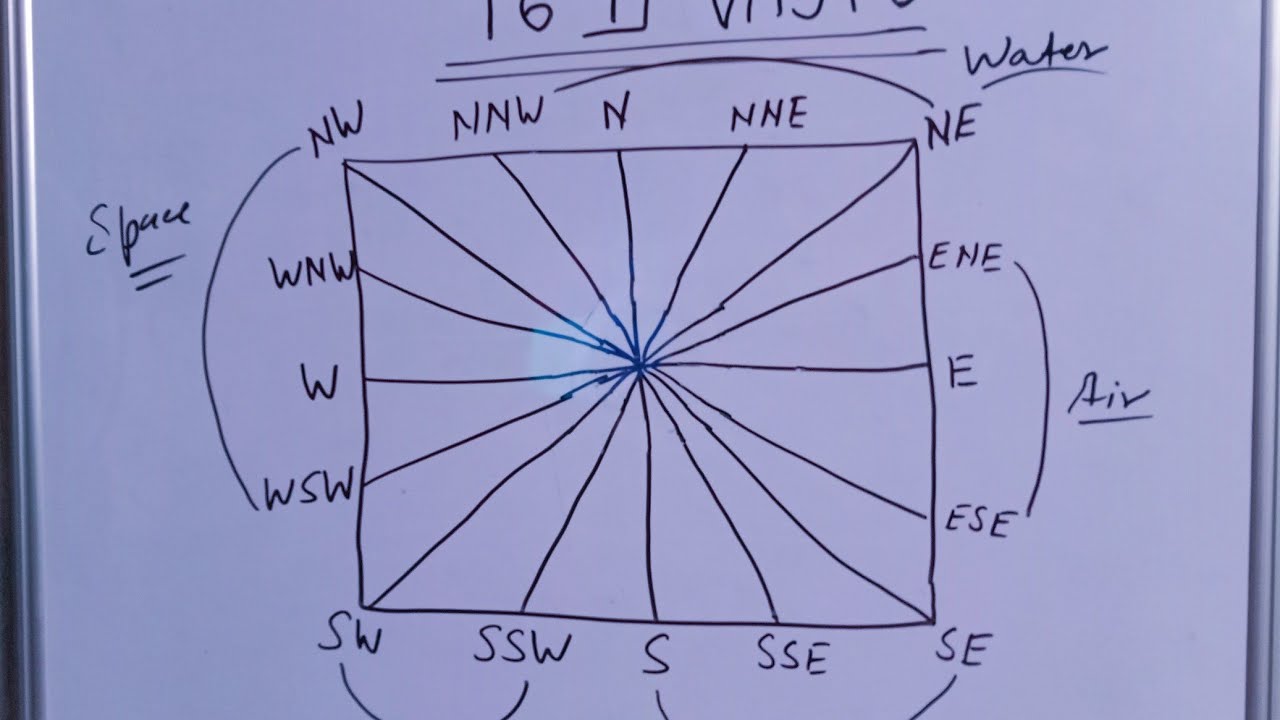 16
Water
NW NNW N NNE NE
Space
WNW ENE
W E
Air
WSW ESE
SW SSW S SSE SE